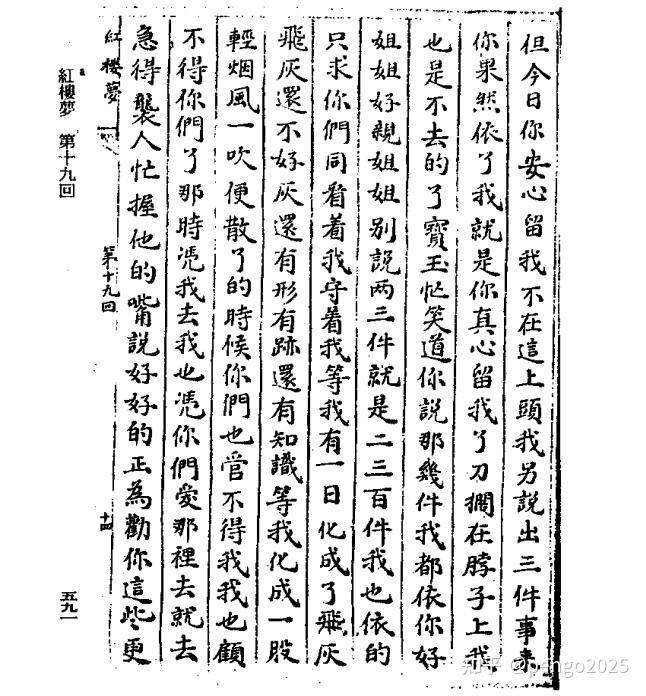 但今日你安心留我不在這上頭我另說出三件事来
你果然依了我就是你真心留我了刀擱在脖子上我
也是不去的了寳玉忙笑道你說那幾件我都依你好
姐姐好親姐姐别說两三件就是二三百件我也依的
只求你們同看着我守着我等我有一日化成了飛灰
飛灰還不好灰還有形有跡還有知識等我化成一股
輕烟風一吹便散了的時候你們也管不得我我也顧
不得你們了那時憑我去我也憑你們愛那裡去就去
急得襲人忙握他的嘴說好好的正為勸你這些更
紅樓夢 第十九回 十四
紅樓夢 第十九回 五九一
知乎 @pengo2025